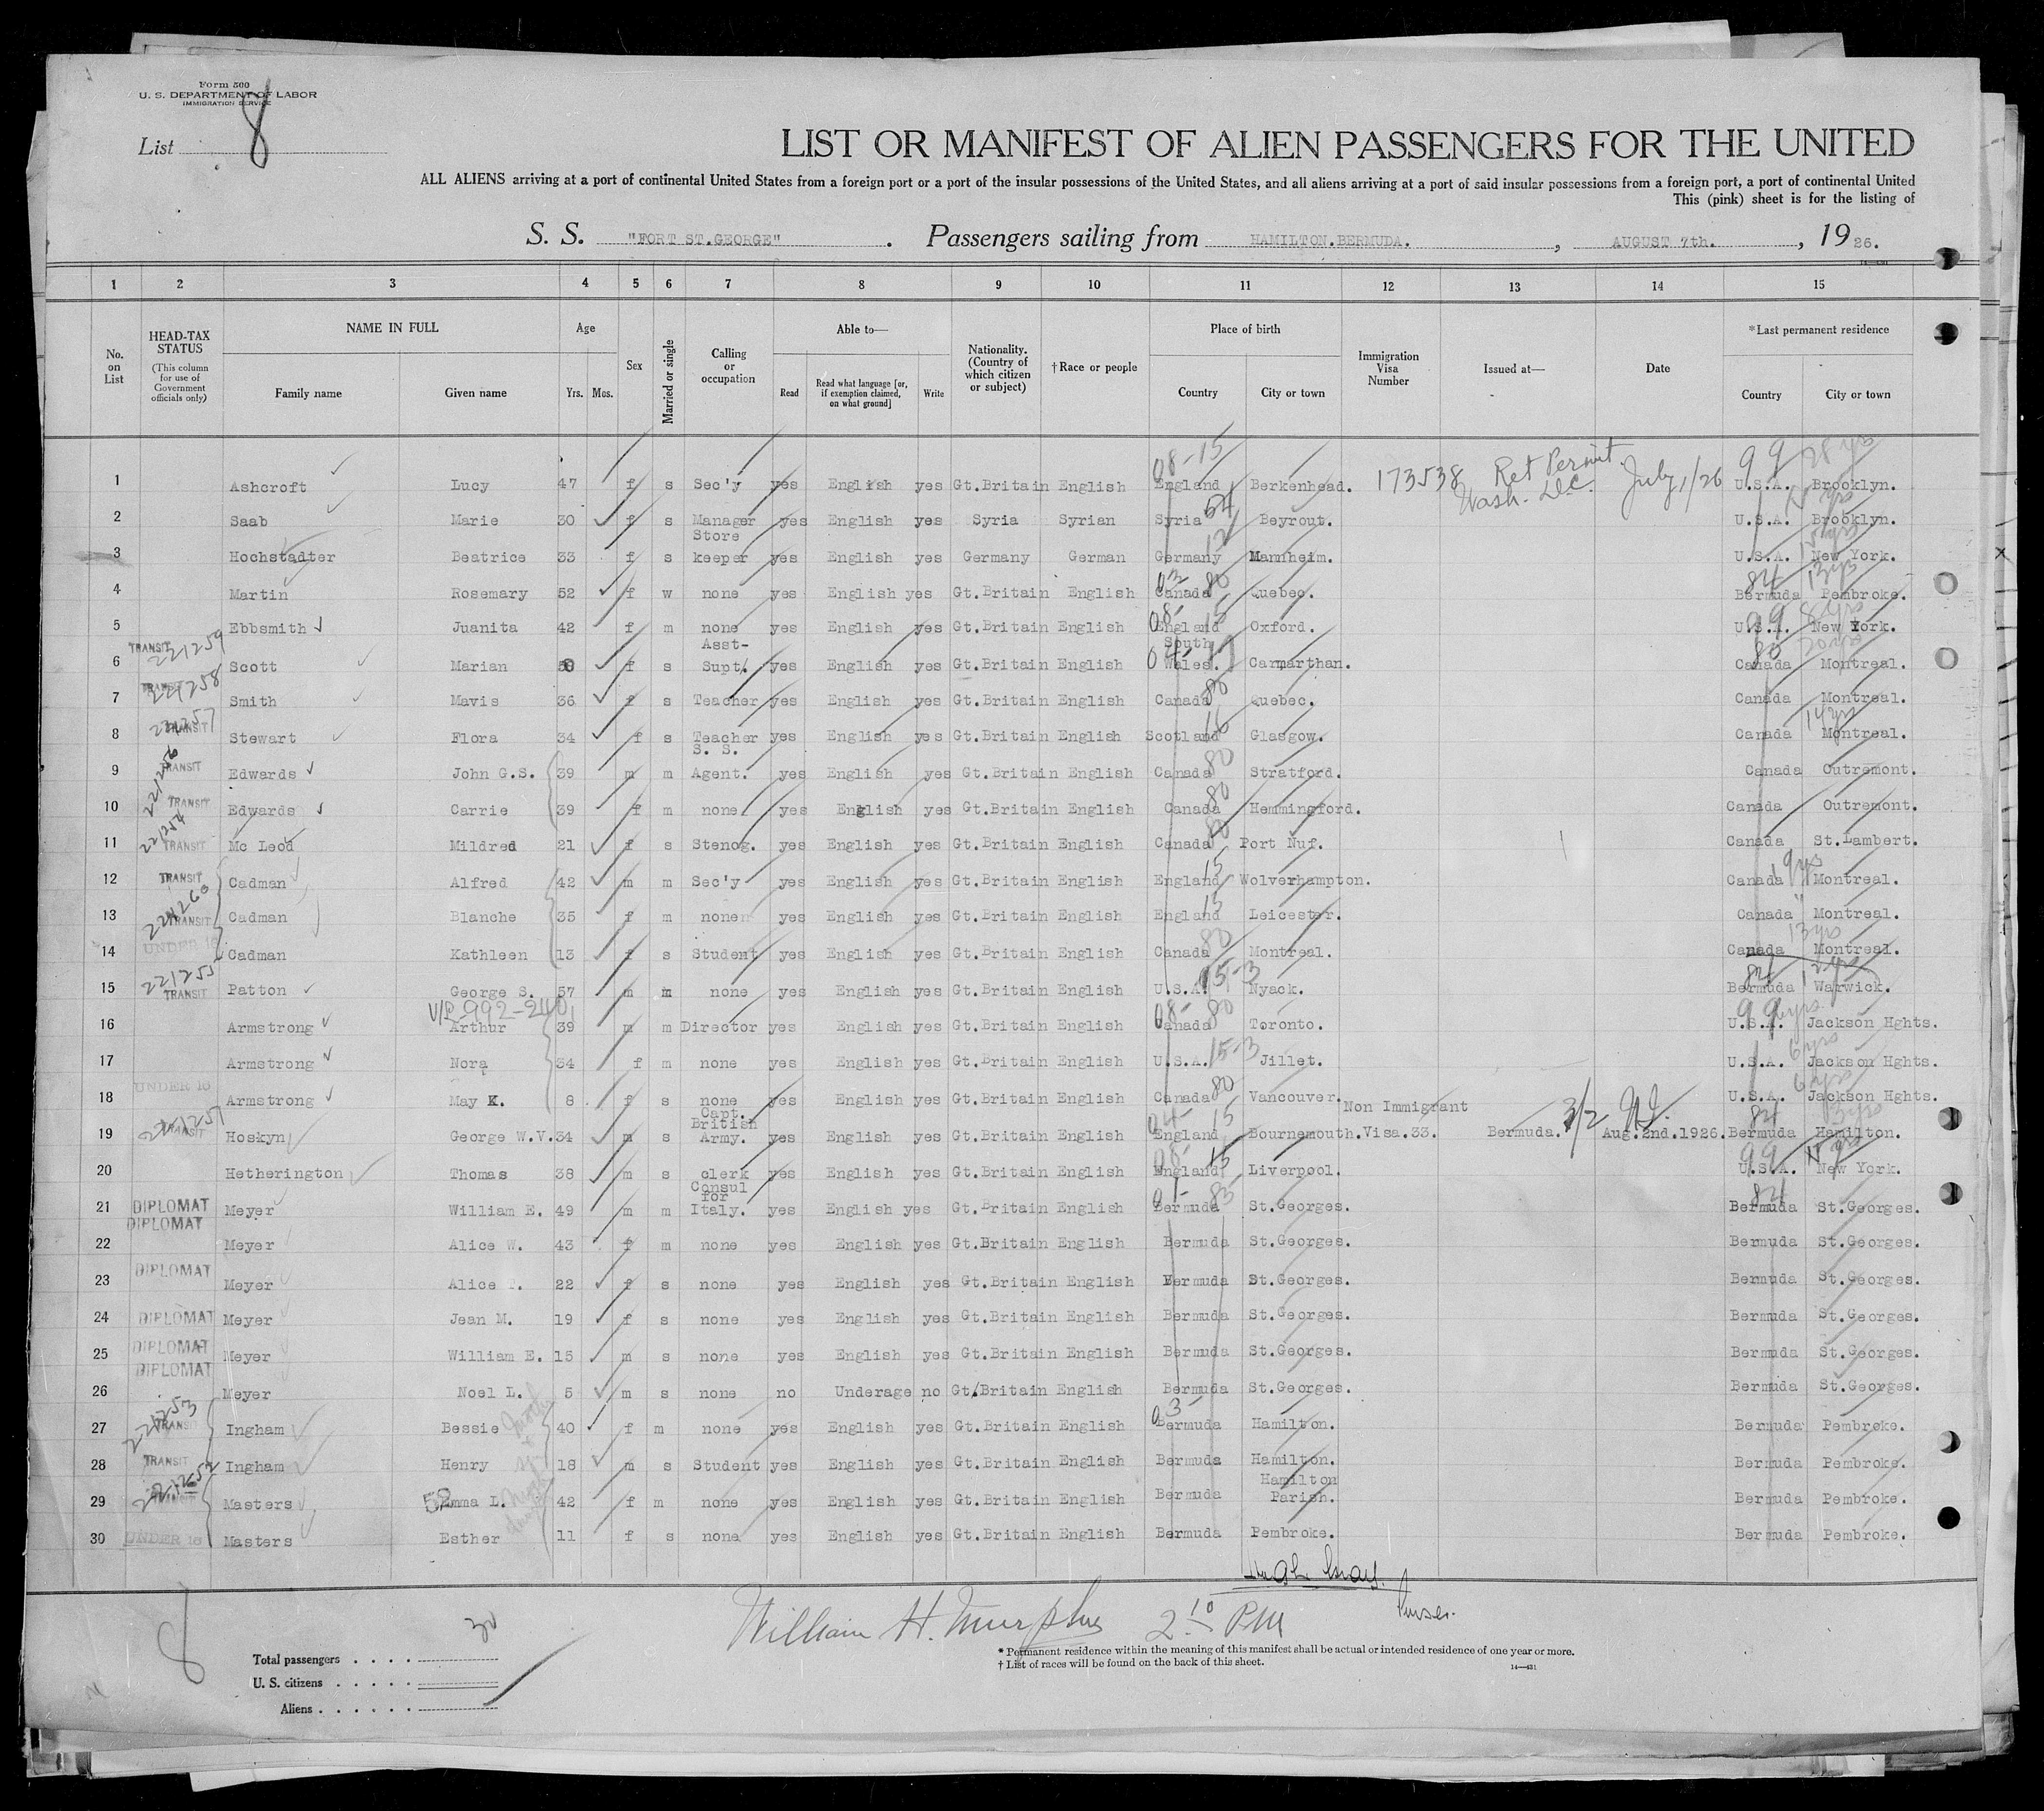 Form 500
U. S. DEPARTMENT OF LABOR
IMMIGRATION SERVICE
List 8
LIST OR MANIFEST OF ALIEN PASSENGERS FOR THE UNITED
ALL ALIENS arriving at a port of continental United States from a foreign port or a port of the insular possessions of the United States, and all aliens arriving at a port of said insular possessions from a foreign port, a port of continental United
This (pink) sheet is for the listing of
S. S. "FORT ST.GEORGE" . Passengers sailing from HAMILTON.BERMUDA. , AUGUST 7th. , 1926.
1 2 3 4 5 6 7 8 9 10 11 12 13 14 15
No. on List HEAD-TAX STATUS (This column for use of Government officials only) NAME IN FULL Family name Given name Age Yrs. Mos. Sex Married or single Calling or occupation Able to— Read Read what language [or, if exemption claimed, on what ground] Write Nationality. (Country of which citizen or subject) †Race or people Place of birth Country City or town Immigration Visa Number Issued at— Date *Last permanent residence Country City or town
08-15 99 28 yrs
1 Ashcroft Lucy 47 f s Sec'y yes English yes Gt.Britain English England Berkenhead. 173538 Ret Permit. Wash. D.C. July 1/26 U.S.A. Brooklyn.
2 Saab Marie 30 f s Manager yes English yes Syria Syrian Syria 54 Beyrout. U.S.A. Brooklyn.
3 Hochstadter Beatrice 33 f s Store keeper yes English yes Germany German Germany 12 Mannheim. U.S.A. New York.
4 Martin Rosemary 52 f w none yes English yes Gt.Britain English Canada 80 Quebec. 84 13yrs Bermuda Pembroke.
5 Ebbsmith Juanita 42 f m none yes English yes Gt.Britain English 08- 15 England Oxford. 99 8 yrs U.S.A. New York.
6 TRANSIT 221259 Scott Marian 50 f s Asst- Supt. yes English yes Gt.Britain English South Wales. Carmarthan. 80 20yrs Canada Montreal.
7 TRANSIT 221258 Smith Mavis 36 f s Teacher yes English yes Gt.Britain English Canada 80 Quebec. Canada Montreal.
8 221257 TRANSIT Stewart Flora 34 f s Teacher yes English yes Gt.Britain English Scotland 16 Glasgow. 14yrs Canada Montreal.
9 221256 TRANSIT Edwards John G.S. 39 m m S. S. Agent. yes English yes Gt.Britain English Canada 80 Stratford. Canada Outremont.
10 TRANSIT Edwards Carrie 39 f m none yes English yes Gt.Britain English Canada 80 Hemmingford. Canada Outremont.
11 221254 TRANSIT Mc Leod Mildred 21 f s Stenog. yes English yes Gt.Britain English Canada 80 Port Nuf. Canada St.Lambert.
12 TRANSIT Cadman Alfred 42 m m Sec'y yes English yes Gt.Britain English England 15 Wolverhampton. 19yrs Canada Montreal.
13 221260 TRANSIT Cadman Blanche 35 f m none yes English yes Gt.Britain English England 15 Leicester. Canada " Montreal.
14 UNDER 16 Cadman Kathleen 13 f s Student yes English yes Gt.Britain English Canada 80 Montreal. 13yrs Canada Montreal.
15 221255 TRANSIT Patton George S. 57 m m none yes English yes Gt.Britain English U.S.A. 15-3 Nyack. 84 Bermuda Warwick.
V/L-992-240
16 Armstrong Arthur 39 m m Director yes English yes Gt.Britain English 08- 80 Canada Toronto. 99 6yrs. U.S.A. Jackson Hghts.
17 Armstrong Nora 34 f m none yes English yes Gt.Britain English U.S.A. 15-3 Jillet. 6yrs U.S.A. Jackson Hghts.
18 UNDER 16 Armstrong May K. 8 f s none yes English yes Gt.Britain English Canada 80 Vancouver. 6yrs U.S.A. Jackson Hghts.
19 221251 TRANSIT Hoskyn George W.V. 34 m s Capt. British Army. yes English yes Gt.Britain English 04- 15 England Bournemouth. Non Immigrant Visa.33. Bermuda. 3/2 Aug.2nd.1926. 84 13yrs Bermuda Hamilton.
20 Hetherington Thomas 38 m s clerk yes English yes Gt.Britain English 08- 15 England Liverpool. 99 U.S.A. New York.
21 DIPLOMAT Meyer William E. 49 m m Consul for Italy. yes English yes Gt.Britain English 01- 85 Bermuda St.Georges. 84 Bermuda St.Georges.
22 DIPLOMAT Meyer Alice W. 43 f m none yes English yes Gt.Britain English Bermuda St.Georges. Bermuda St.Georges.
23 DIPLOMAT Meyer Alice 22 f s none yes English yes Gt.Britain English Bermuda St.Georges. Bermuda St.Georges.
24 DIPLOMAT Meyer Jean M. 19 f s none yes English yes Gt.Britain English Bermuda St.Georges. Bermuda St.Georges.
25 DIPLOMAT Meyer William E. 15 m s none yes English yes Gt.Britain English Bermuda St.Georges. Bermuda St.Georges.
26 DIPLOMAT Meyer Noel L. 5 m s none no Underage no Gt.Britain English Bermuda St.Georges. Bermuda St.Georges.
27 221253 TRANSIT Ingham Bessie 40 f m none yes English yes Gt.Britain English 03- Bermuda Hamilton. Bermuda Pembroke.
28 TRANSIT Ingham Henry 18 m s Student yes English yes Gt.Britain English Bermuda Hamilton. Bermuda Pembroke.
29 221252 TRANSIT Masters 52 Emma L. 42 f m none yes English yes Gt.Britain English Bermuda Hamilton Parish. Bermuda Pembroke.
30 UNDER 16 Masters Esther 11 f s none yes English yes Gt.Britain English Bermuda Pembroke. Bermuda Pembroke.
William H. Murphy 2 10 PM Purser.
8
* Permanent residence within the meaning of this manifest shall be actual or intended residence of one year or more.
† List of races will be found on the back of this sheet.
14—431
Total passengers . . . . 30
U. S. citizens . . . . .
Aliens . . . . . .